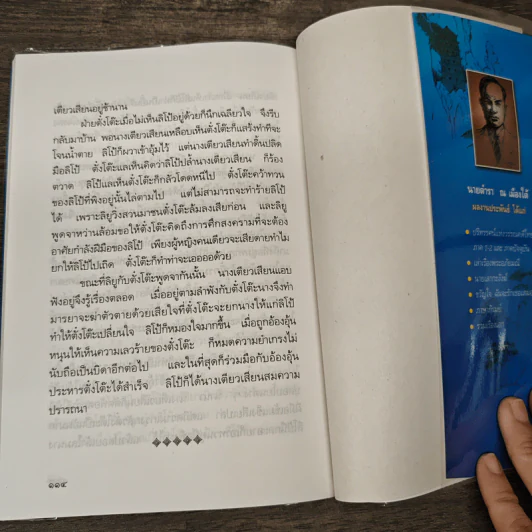 เตียวเสียนอยู่ช้านาน
ฝ่ายตั๋งโต๊ะเมื่อไม่เห็นลิโป้อยู่ด้วยก็นึกเฉลียวใจ จึงรีบ
กลับมาบ้าน พอนางเตียวเสียนเหลือบเห็นตั๋งโต๊ะก็แสร้งทำทีจะ
โจนน้ำตาย ลิโป้ก็ผวาเข้าอุ้มไว้ แต่นางเตียวเสียนทำดิ้นปลิด
มือลิโป้ ตั๋งโต๊ะแลเห็นคิดว่าลิโป้ปล้ำนางเตียวเสียน ก็ร้อง
ตวาด ลิโป้แลเห็นตั๋งโต๊ะก็กลัวโดดหนีไป ตั๋งโต๊ะคว้าทวน
ของลิโป้ที่พิงอยู่นั้นไล่ตามไป แต่ไม่สามารถจะทำร้ายลิโป้
ได้ เพราะลิยูวิ่งสวนมาชนตั๋งโต๊ะล้มลงเสียก่อน และลิยู
พูดจาหว่านล้อมขอให้ตั๋งโต๊ะคิดถึงการศึกสงครามที่จะต้อง
อาศัยกำลังฝีมือของลิโป้ เพียงผู้หญิงคนเดียวจะเสียดายทำไม
ยกให้ลิโป้ไปเถิด ตั๋งโต๊ะก็ทำท่าจะเออออด้วย
ขณะที่ลิยูกับตั๋งโต๊ะพูดจากันนั้น นางเตียวเสียนแอบ
ฟังอยู่จึงรู้เรื่องตลอด เมื่ออยู่ตามลำพังกับตั๋งโต๊ะนางจึงทำ
มารยาจะฆ่าตัวตายด้วยเสียใจที่ตั๋งโต๊ะจะยกนางให้แก่ลิโป้
ทำให้ตั๋งโต๊ะเปลี่ยนใจ ลิโป้ก็หมองใจมากขึ้น เมื่อถูกอ้องอุ้น
หนุนให้เห็นความเลวร้ายของตั๋งโต๊ะ ก็หมดความยำเกรงไม่
นับถือเป็นบิดาอีกต่อไป และในที่สุดก็ร่วมมือกับอ้องอุ้น
ประหารตั๋งโต๊ะได้สำเร็จ ลิโป้ก็ได้นางเตียวเสียนสมความ
ปรารถนา
๑๑๔
นายตำรา ณ เมืองใต้
ผลงานประพันธ์ ได้แก่